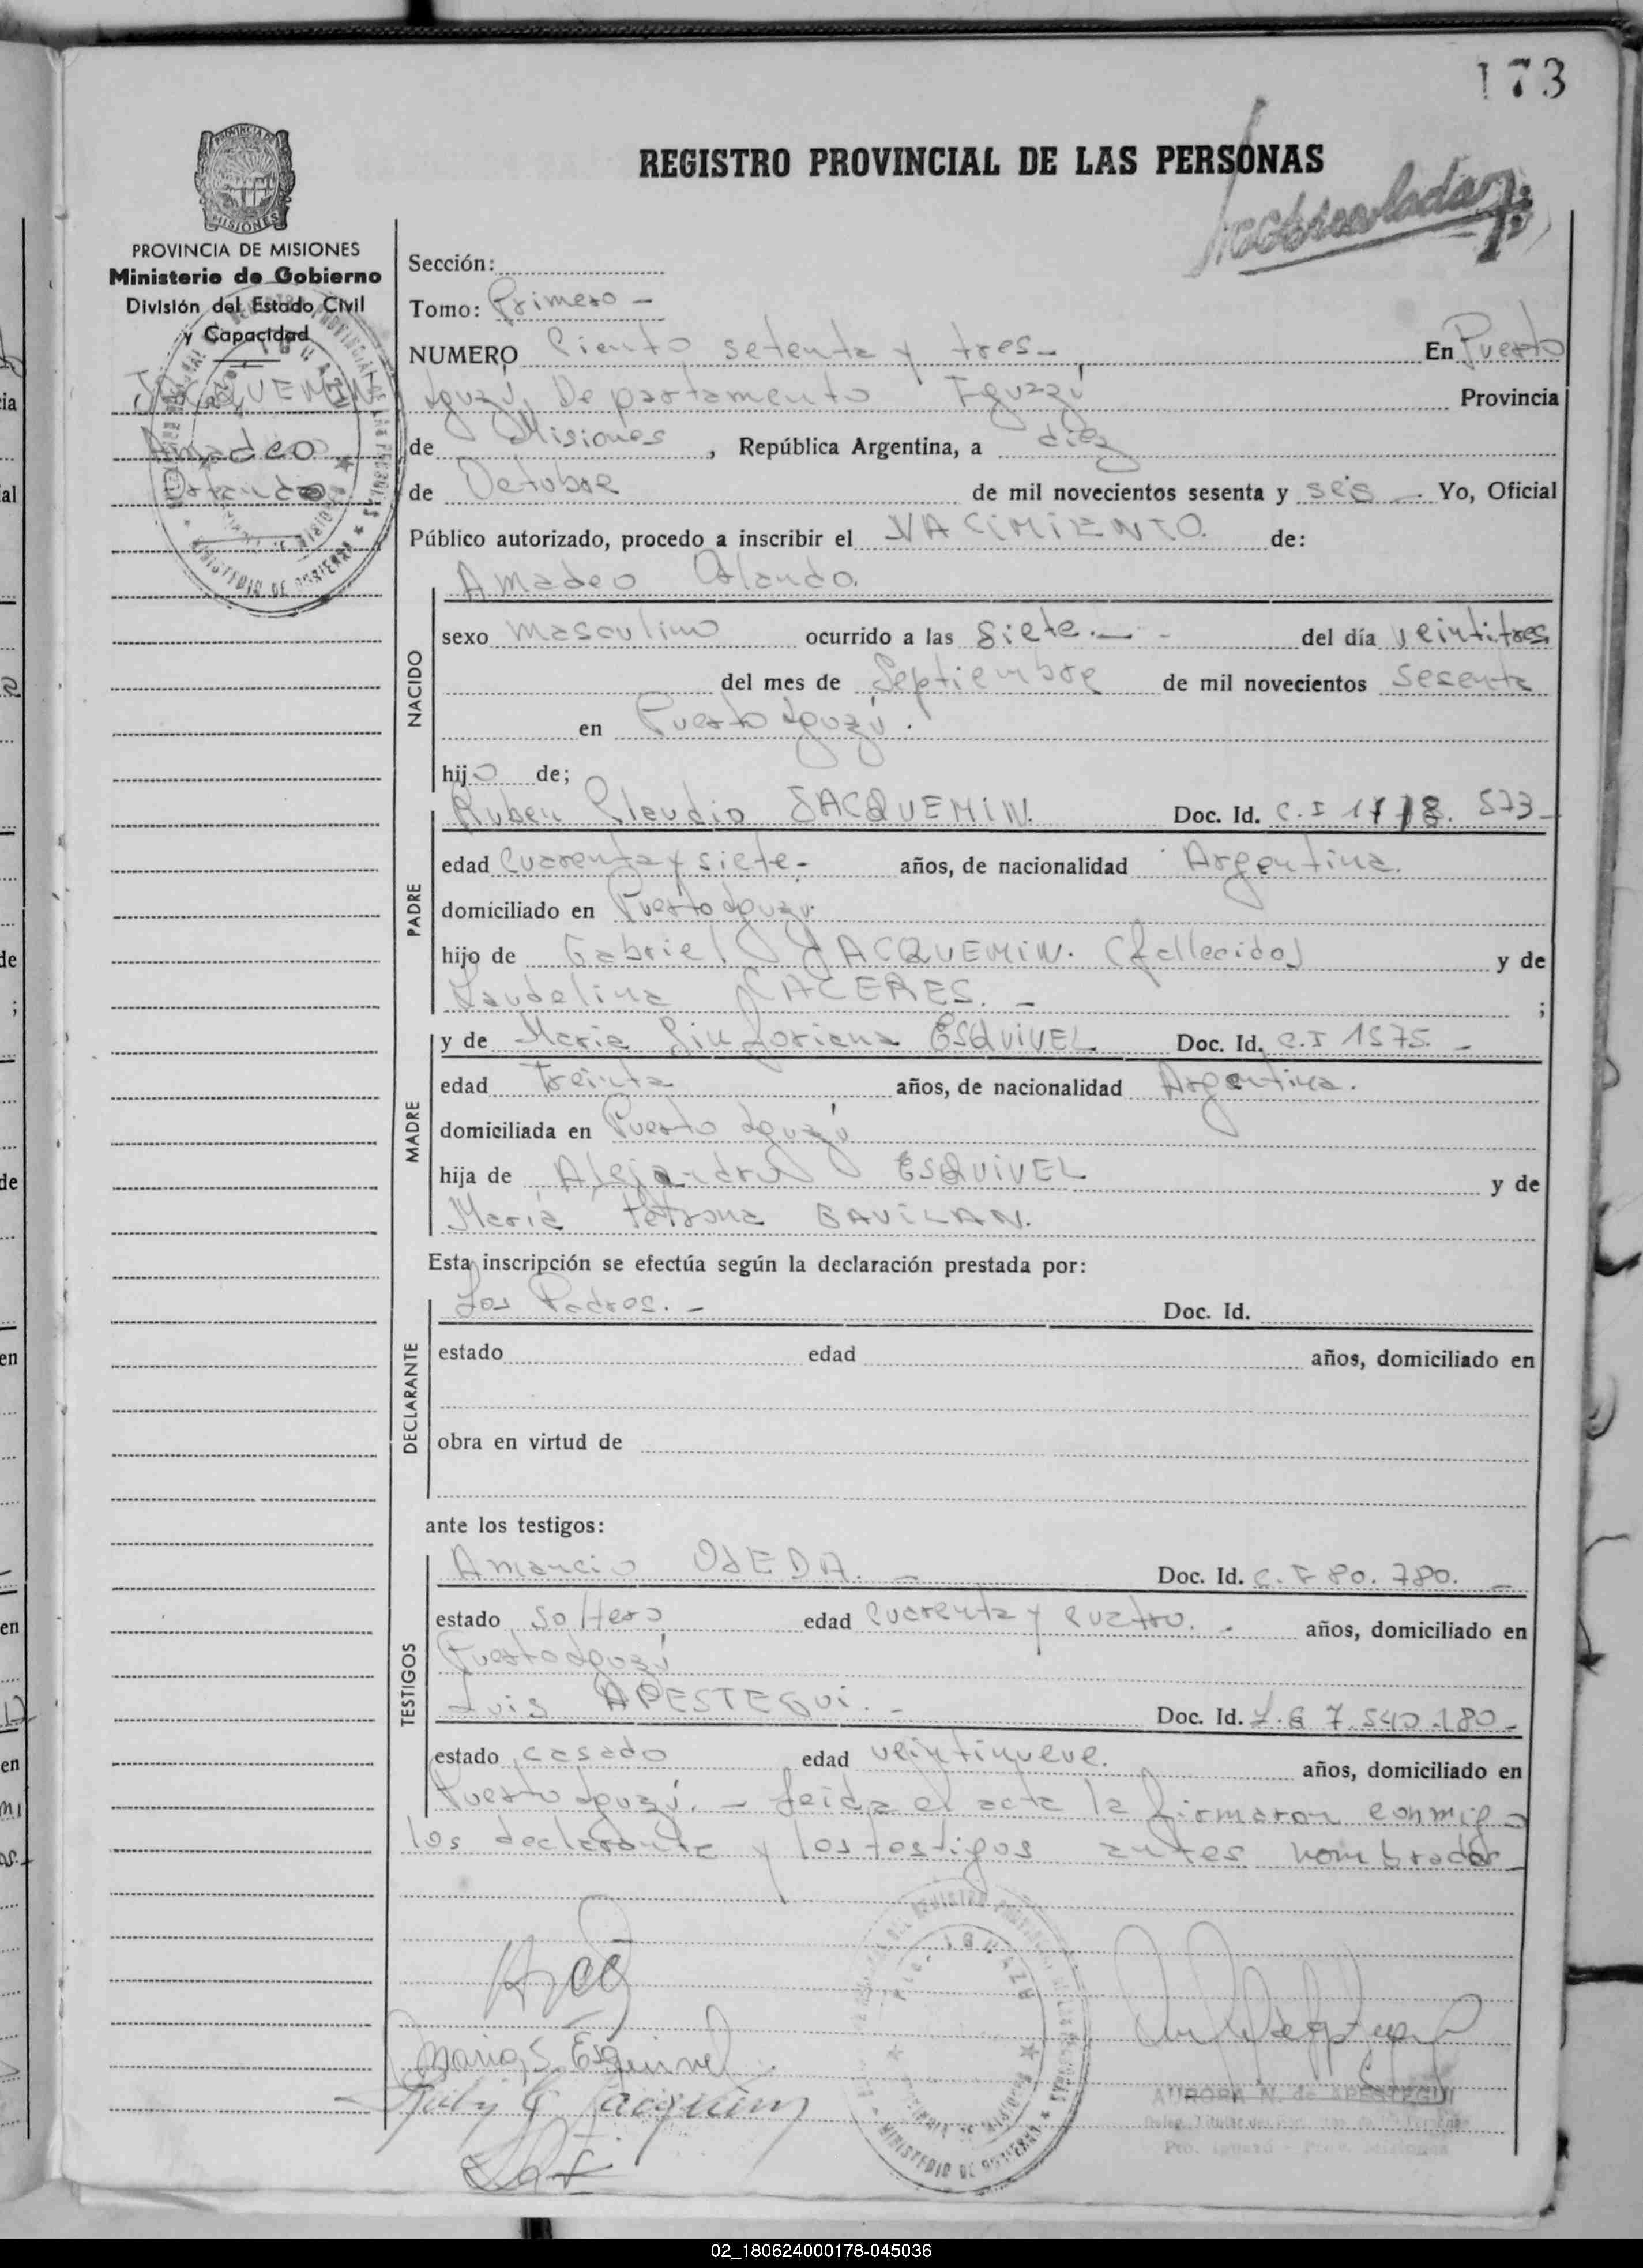 173
REGISTRO PROVINCIAL DE LAS PERSONAS
PROVINCIA DE MISIONES
Ministerio de Gobierno
División del Estado Civil
y Capacidad
JACQUEMIN
Amadeo
Orlando
Sección:
Tomo: Primero -
NUMERO Ciento setenta y tres - En Puerto
Iguazú, Departamento Iguazú Provincia
de Misiones, República Argentina, a diez
de Octubre de mil novecientos sesenta y seis - Yo, Oficial
Público autorizado, procedo a inscribir el NACIMIENTO de:
NACIDO
Amadeo Orlando.
sexo masculino ocurrido a las siete. - - del día veintitres
del mes de Septiembre de mil novecientos sesenta
en Puerto Iguazú.
hijo de;
PADRE
Ruben Claudio JACQUEMIN. Doc. Id. C. I 573 -
edad Cuarenta y siete - años, de nacionalidad Argentina.
domiciliado en Puerto Iguazú
hijo de Gabriel JACQUEMIN. (fallecido) y de
Laudelina CACERES. - ;
MADRE
y de Maria Sinforiana ESQUIVEL Doc. Id. C. I 1575. -
edad Treinta años, de nacionalidad Argentina.
domiciliada en Puerto Iguazú
hija de Alejandro ESQUIVEL y de
María Petrona GAVILAN.
Esta inscripción se efectúa según la declaración prestada por:
DECLARANTE
Los Padres. - Doc. Id.
estado edad años, domiciliado en
obra en virtud de
ante los testigos:
TESTIGOS
Amancio OJEDA. - Doc. Id. C. I 80. 780. -
estado soltero edad Cuarenta y cuatro. - años, domiciliado en
Puerto Iguazú
Luis APESTEGUI. - Doc. Id. 7. 540 .180 -
estado casado edad veintinueve. años, domiciliado en
Puerto Iguazú. - Leida el acta la firmaron conmigo
los declarante y los testigos antes nombrados
Maria S. Esquivel
AURORA N. de APESTEGUI
Pto. Iguazú - Prov. Misiones
02_180624000178-045036